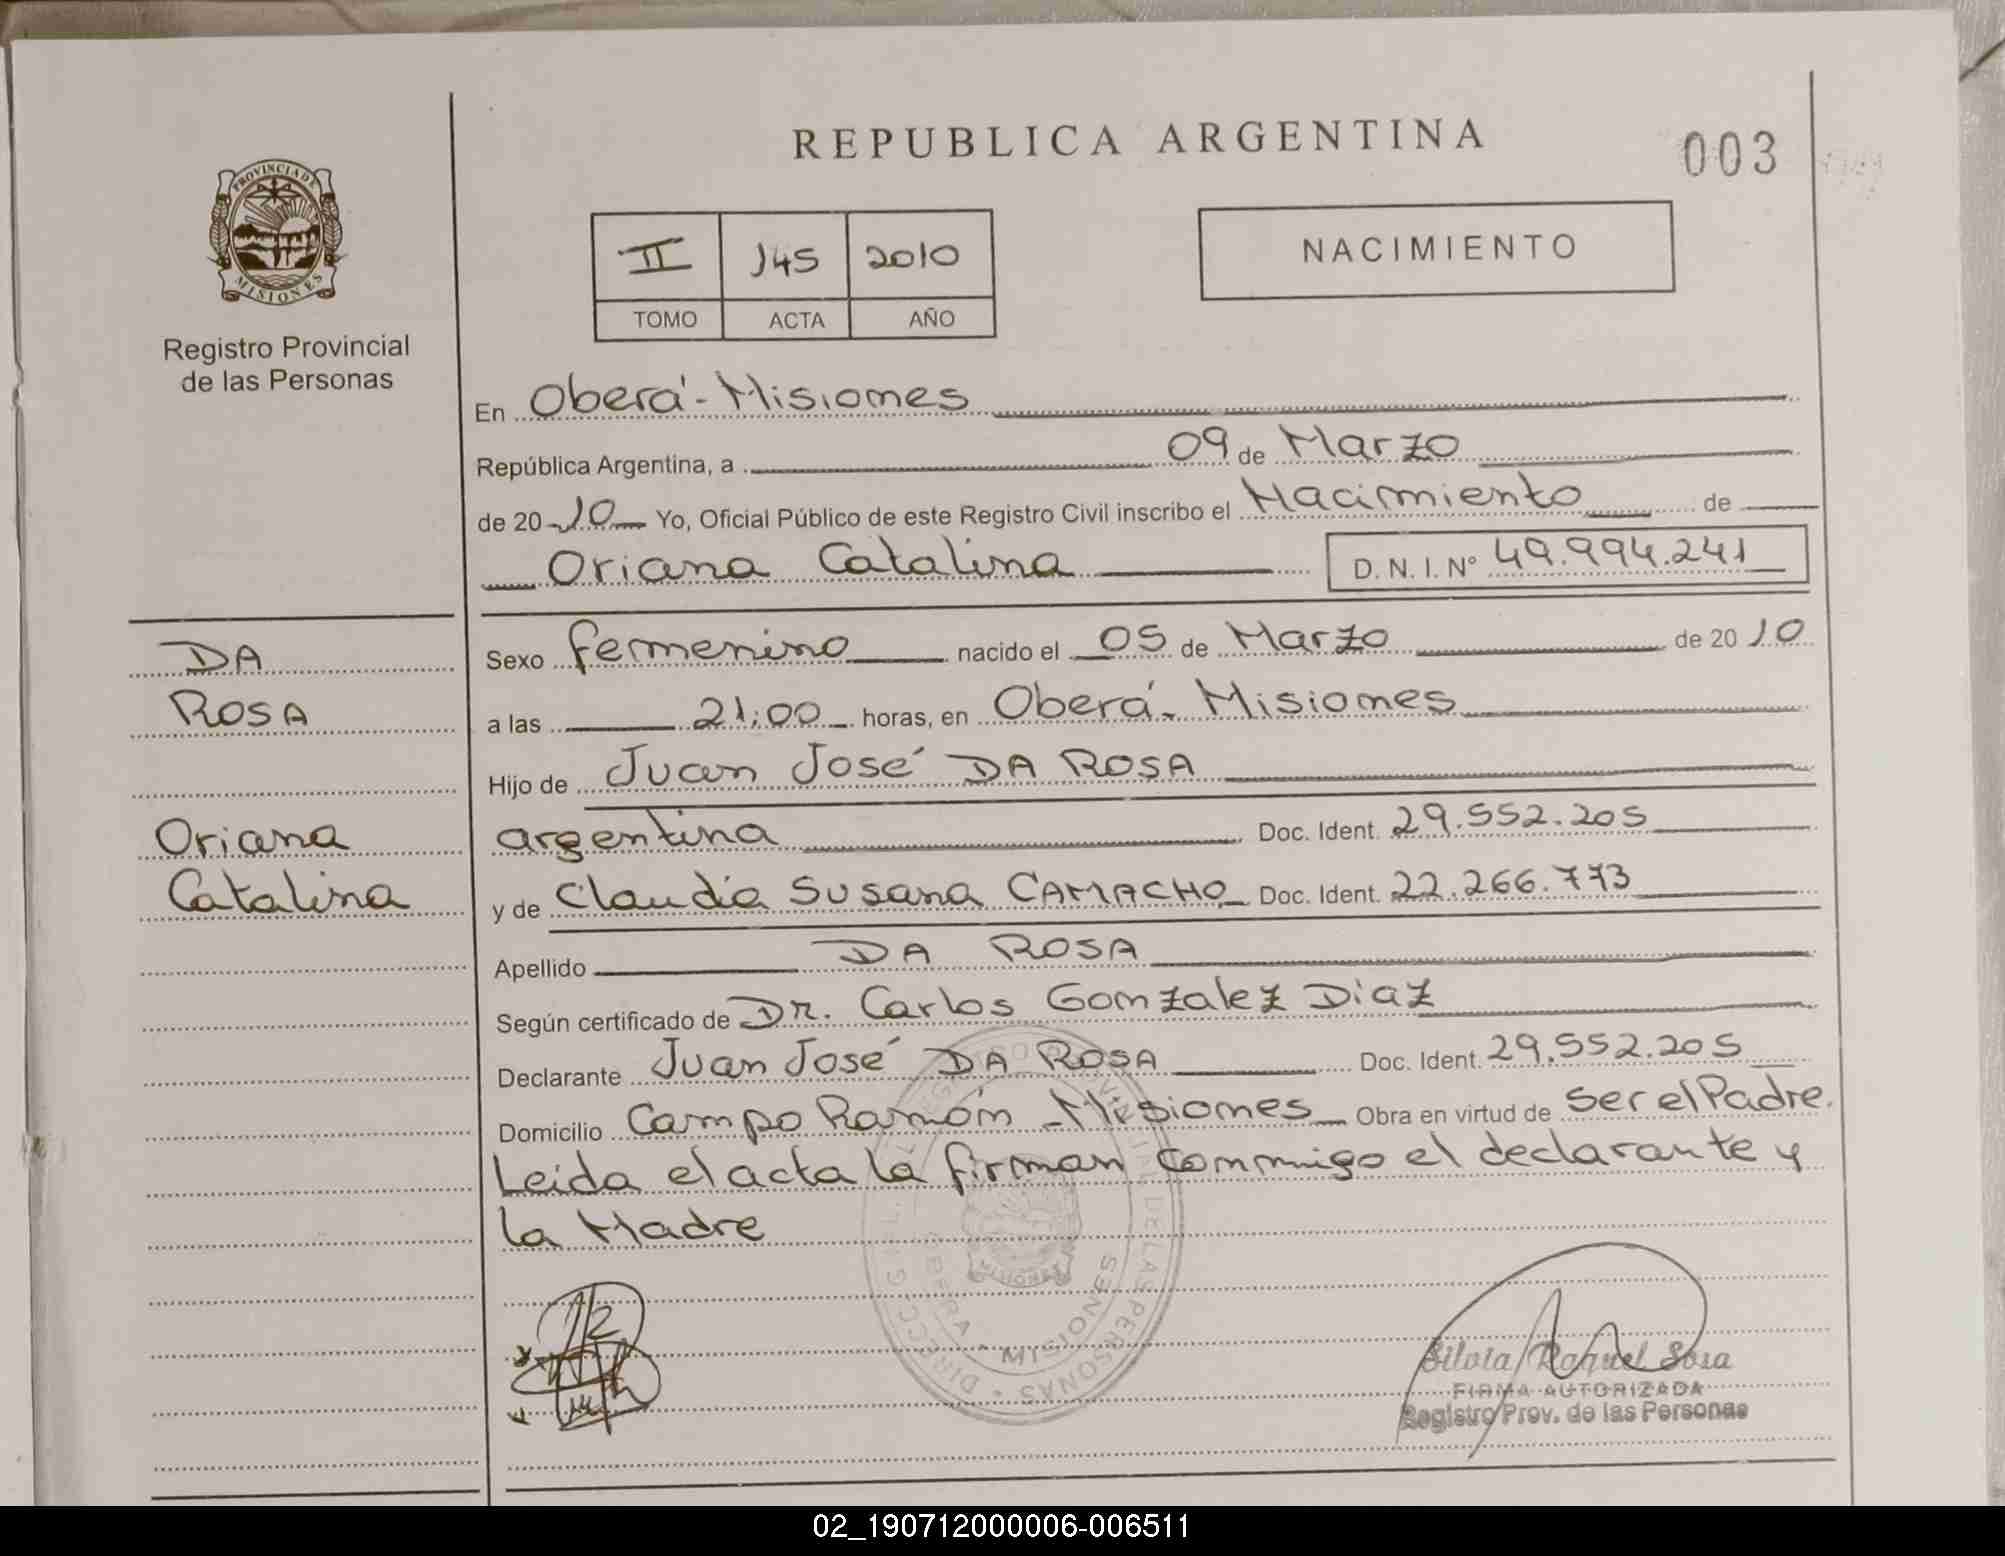 REPUBLICA ARGENTINA
003
PROVINCIA DE
MISIONES
Registro Provincial
de las Personas
II 145 2010
TOMO ACTA AÑO
NACIMIENTO
En Oberá - Misiones
República Argentina, a 09 de Marzo
de 20 10 Yo, Oficial Público de este Registro Civil inscribo el Nacimiento de
Oriana Catalina D.N.I. Nº 49.994.241
DA
ROSA
Oriana
Catalina
Sexo femenino nacido el 05 de Marzo de 20 10
a las 21:00 horas, en Oberá - Misiones
Hijo de Juan José DA ROSA
argentina Doc. Ident. 29.552.205
y de Claudia Susana CAMACHO Doc. Ident. 22.266.773
Apellido DA ROSA
Según certificado de Dr. Carlos Gonzalez Diaz
Declarante Juan José DA ROSA Doc. Ident. 29.552.205
Domicilio Campo Ramón - Misiones Obra en virtud de ser el Padre.
Leida el acta la firman conmigo el declarante y
la Madre
DE LAS PERSONAS
MISIONES
Silvia Raquel Sosa
FIRMA AUTORIZADA
Registro Prov. de las Personas
02_190712000006-006511